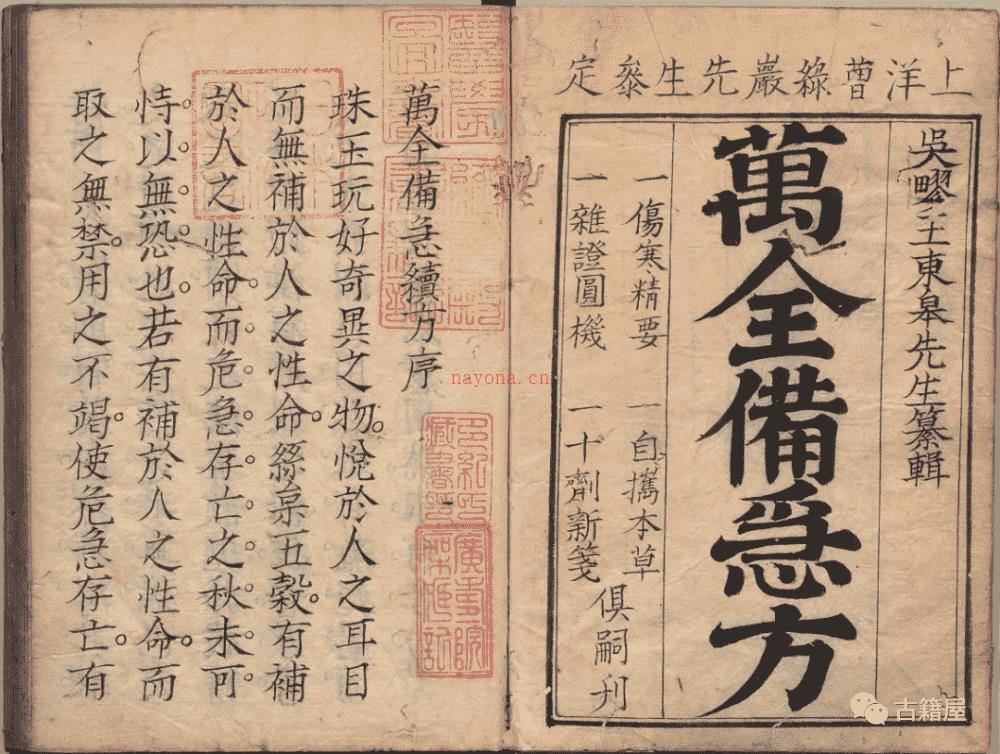 上洋曹綠巖先生叅定
吳郡王東皋先生纂輯
萬全備急方
一傷寒精要 一自攜本草
一雜證圓機 一十劑新箋
俱嗣刋
萬全備急續方序
珠玉玩好奇異之物。悅於人之耳目
而無補於人之性命。絲枲五穀。有補
於人之性命。而危急存亡之秋。未可
恃以無恐也。若有補於人之性命。而
取之無禁。用之不竭。使危急存亡。有
nayona.cn
古籍屋